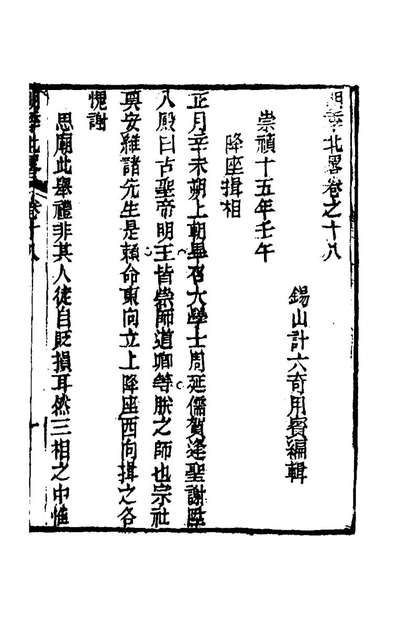 明季北畧卷之十八
錫山計六奇用賓編輯
崇禎十五年壬午
降座揖相
正月辛未朔上朝畢召大學士周延儒賀逢聖謝陞
入殿曰古聖帝明王皆崇師道卿等朕之師也宗社
奠安維諸先生是賴命東向立上降座西向揖之各
愧謝
思廟此舉禮非其人徒自貶損耳然三相之中惟
明季北畧 卷十八